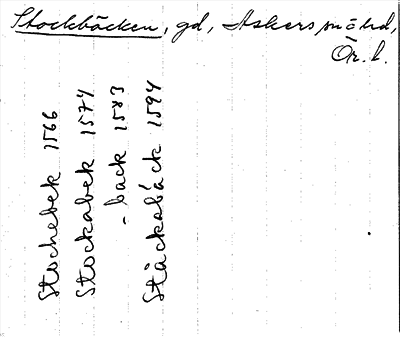 Stockbäcken, gd, Askers sn o hd,
Ör. l.
Stochebek 1566
Stockabek 1574
- back 1583
Ståckabäck 1594